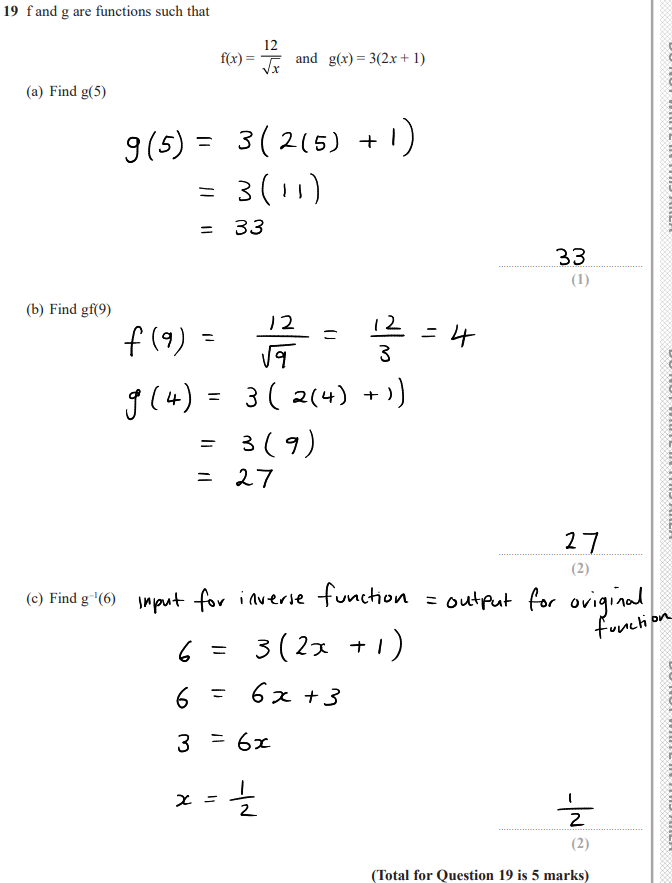 19 f and g are functions such that
f(x) = 12/√x and g(x) = 3(2x + 1)
(a) Find g(5)
g(5) = 3(2(5) + 1)
= 3(11)
= 33
33
(1)
(b) Find gf(9)
f(9) = 12/√9 = 12/3 = 4
g(4) = 3(2(4) + 1)
= 3(9)
= 27
27
(2)
(c) Find g⁻¹(6) input for inverse function = output for original
function
6 = 3(2x + 1)
6 = 6x + 3
3 = 6x
x = 1/2
1/2
(2)
(Total for Question 19 is 5 marks)